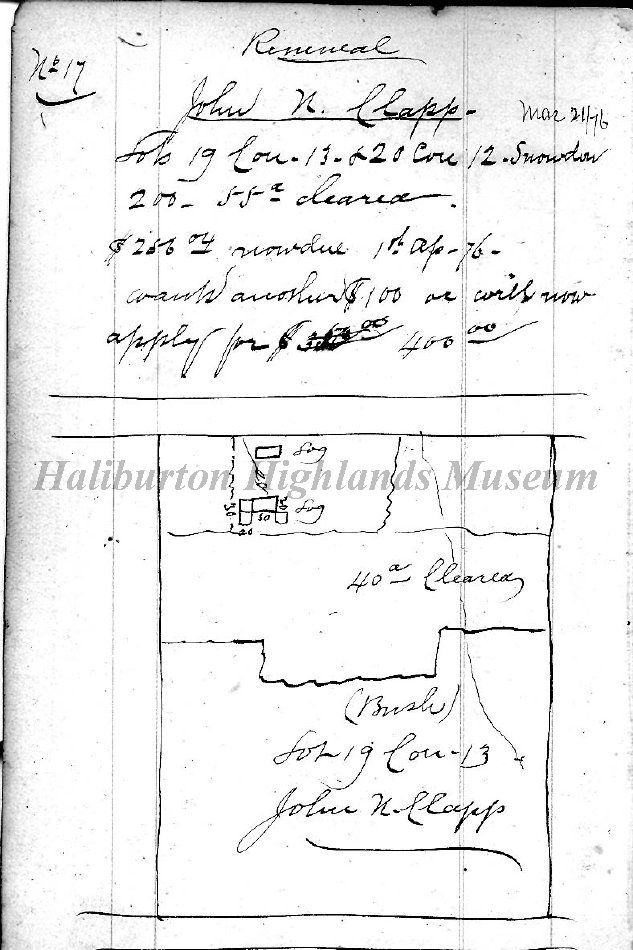 Renewal
No 17
John N. Clapp -
Mar 21/76
Lots 19 Con - 13 - & 20 Con 12 - Snowdon
200 - 55a cleared.
$256 04 now due 1st Ap - 76 -
wants another $100 or will now
apply for $ 400 00
Log
Haliburton Highlands Museum
60
30 30 Log
50
20
40a Cleared
(Bush)
Lot 19 Con - 13
John N. Clapp